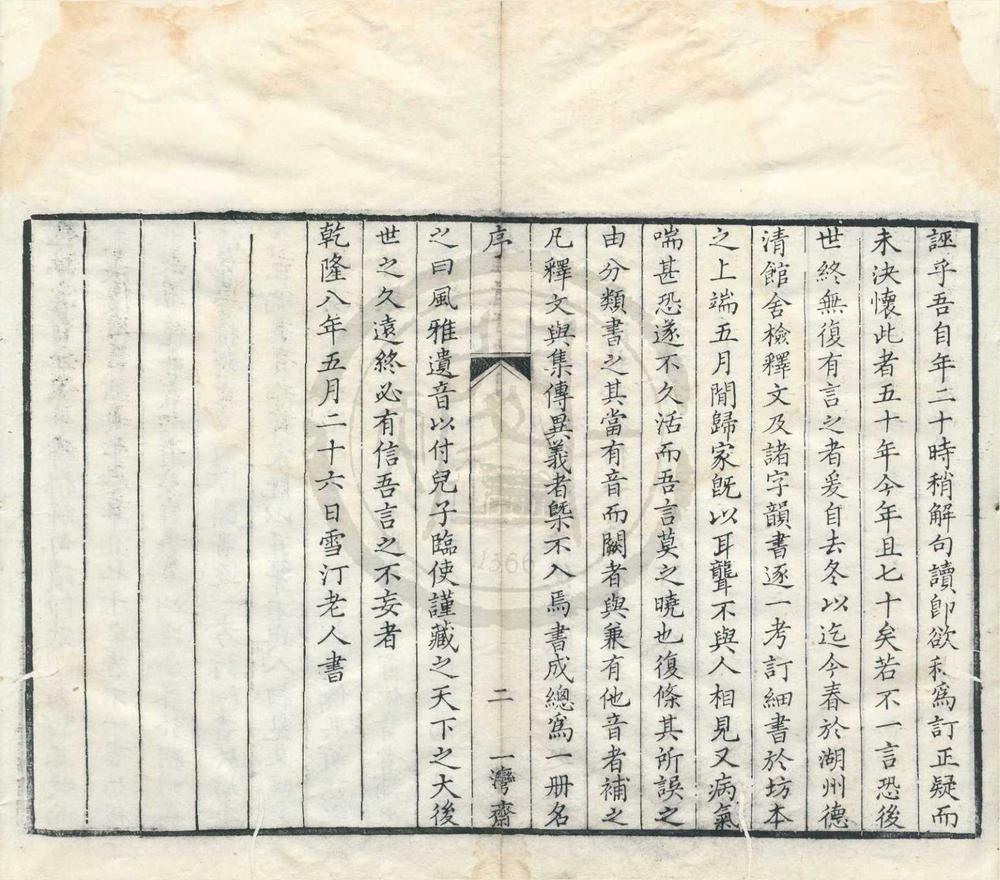 誣乎吾自年二十時稍解句讀卽欲私爲訂正疑而
未決懷此者五十年今年且七十矣若不一言恐後
世終無復有言之者爰自去冬以迄今春於湖州德
清館舍檢釋文及諸字韻書逐一考訂細書於坊本
之上端五月閒歸家旣以耳聾不與人相見又病氣
喘甚恐遂不久活而吾言莫之曉也復條其所誤之
由分類書之其當有音而闕者與兼有他音者補之
凡釋文與集傳異義者槩不入焉書成總爲一册名
序 二 一灣齋
之曰風雅遺音以付兒子臨使謹藏之天下之大後
世之久遠終必有信吾言之不妄者
乾隆八年五月二十六日雪汀老人書
1366